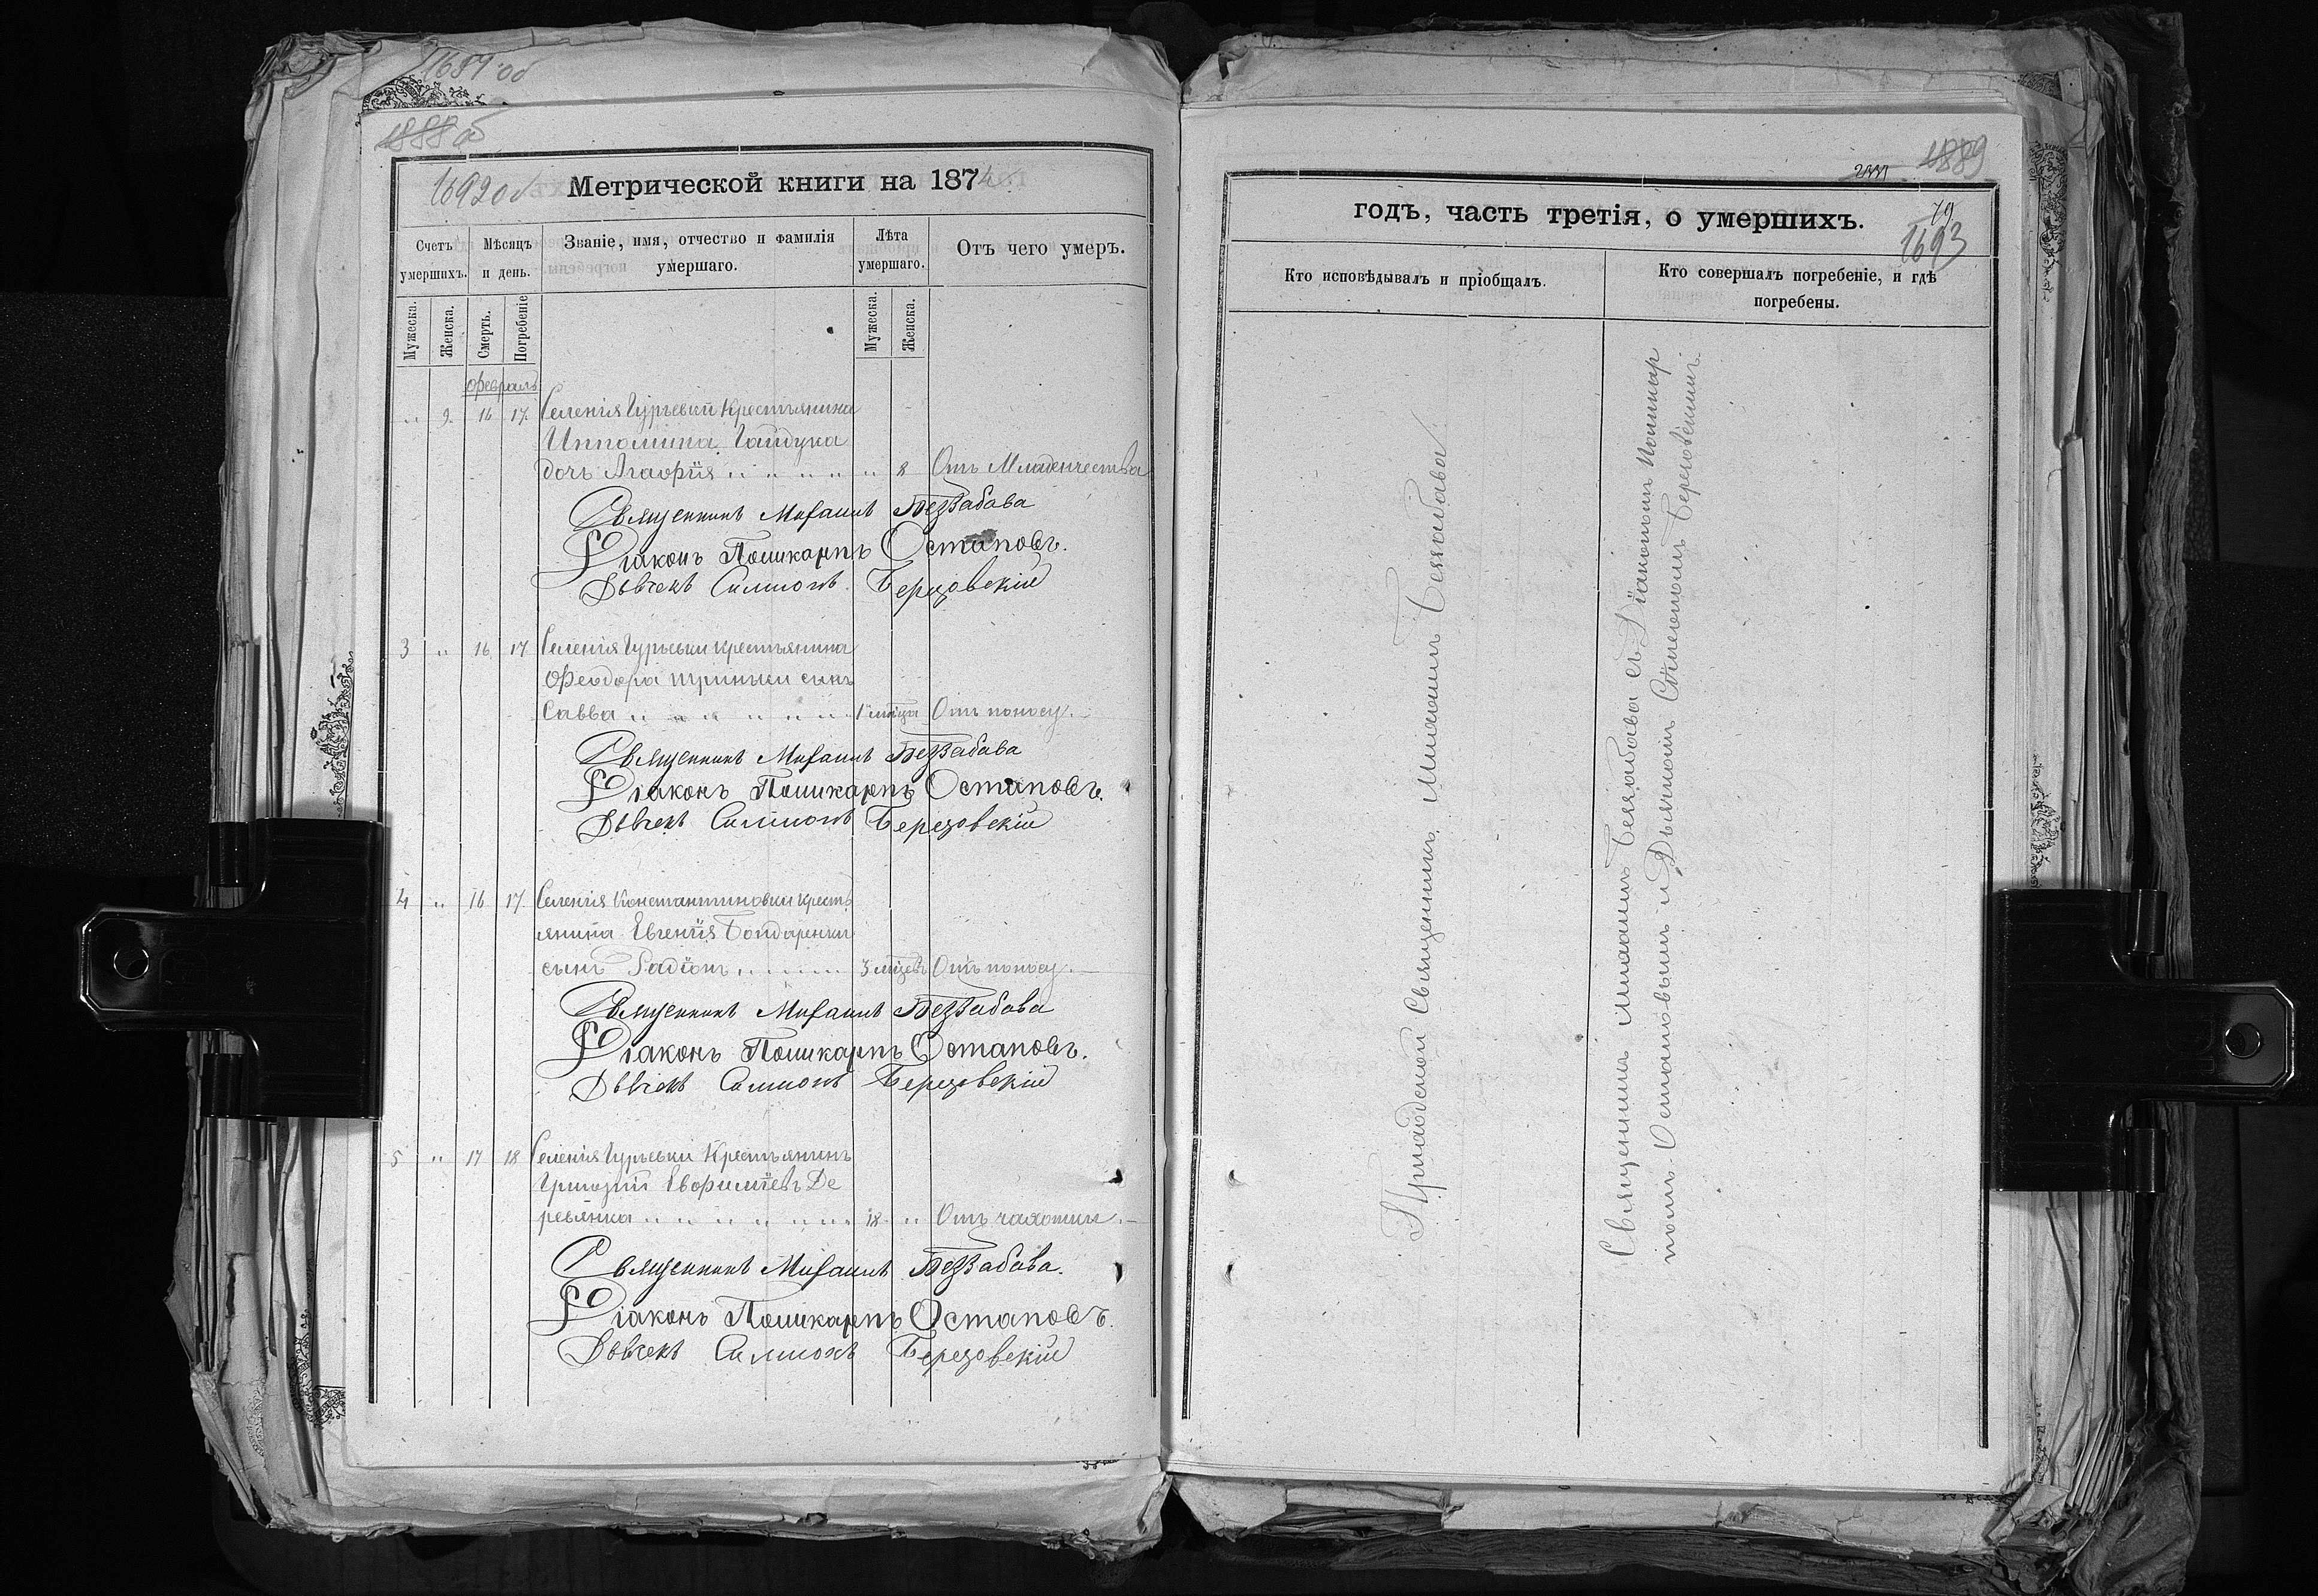 1691 об
1888 об
1692 об
Метрической книги на 1874
Счетъ умершихъ.
Мѣсяцъ и день.
Званіе, имя, отчество и фамилія умершаго.
Лѣта умершаго.
Отъ чего умеръ.
Мужеска.
Женска.
Смерть.
Погребеніе
Мужеска.
Женска.
Февраль
„ 9. 16 17. Селенія Гурьевки Крестьянина
Ипполита Гайдука
дочь Агафія „ „ „ „ „ 8 Отъ Младенчества
Священникъ Михаилъ Беззабава
Діаконъ Поликарпъ Остаповъ.
Дьячекъ Симионъ Березовскій
3 „ 16 17 Селенія Гурьевки крестьянина
Феодора сынъ
Савва „ „ „ „ „ „ 1 мѣсца Отъ поносу.
Священникъ Михаилъ Беззабава
Діаконъ Поликарпъ Остаповъ.
Дьячекъ Симионъ Березовскій
4 „ 16 17 Селенія Константиновки кресть
янина Евгенія Бондаренки
сынъ Радіонъ „ „ „ „ 3 мѣсцевъ Отъ поносу.
Священникъ Михаилъ Беззабава
Діаконъ Поликарпъ Остаповъ.
Дьячекъ Симионъ Березовскій
5 „ 17 18 Селенія Гурьевки Крестьянинъ
Григорій Евфиміевъ Де
ревянка „ „ „ „ „ „ 18 „ Отъ чахотки.
Священникъ Михаилъ Беззабава.
Діаконъ Поликарпъ Остаповъ.
Дьячекъ Симионъ Березовскій
1889
годъ, часть третія, о умершихъ.
79
1693
Кто исповѣдывалъ и пріобщалъ.
Кто совершалъ погребеніе, и гдѣ
погребены.
Приходской Священникъ Михаилъ Беззабава
Священникъ Михаилъ Беззабава съ Діакономъ Поликар
помъ Остаповымъ и Дьячкомъ Симеономъ Березовскимъ